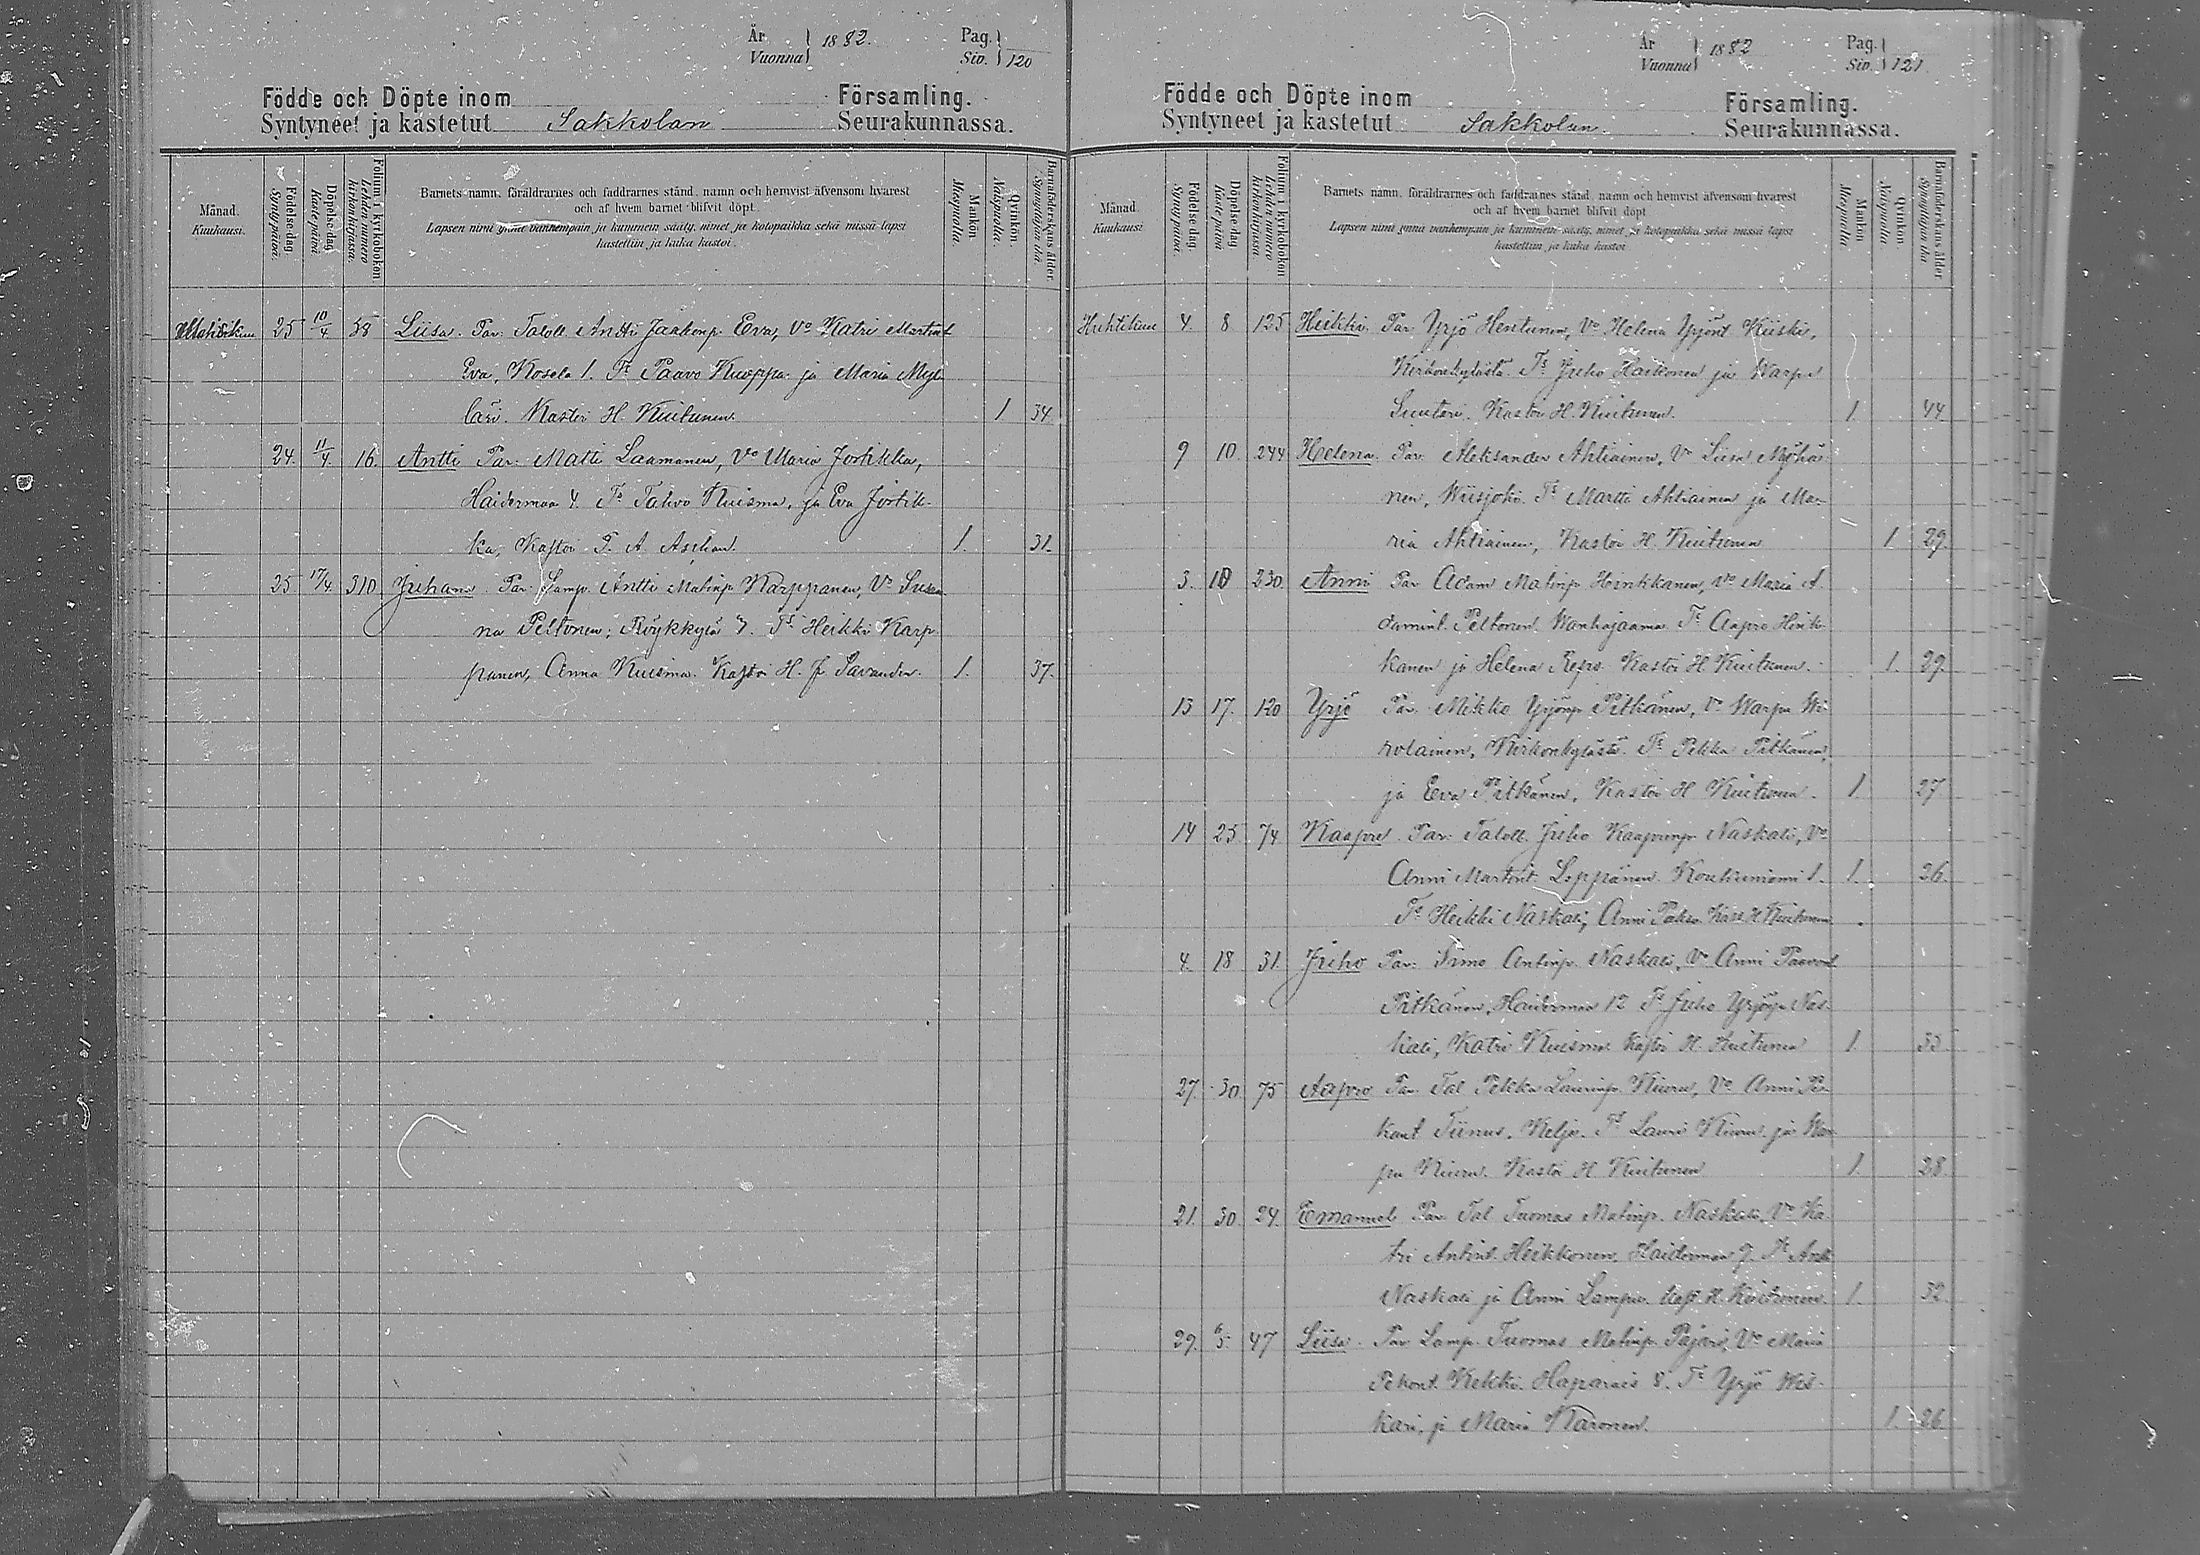 År Vuonna } 1882. Pag. Siv. } 120
Födde och Döpte inom Församling.
Syntyneet ja kastetut Sakkolan Seurakunnassa.
Månad. Kuukausi.
Födelse-dag. Syntypäivä.
Döpelse-dag. Kastepäivä.
Folium i kyrkobokon. Lehden numero kirkonkirjassa.
Barnets namn, föräldrarnes och faddrarnes stånd, namn och hemvist äfvensom hvarest
och af hvem barnet blifvit döpt.
Lapsen nimi ynnä vanhempain ja kummein sääty, nimet ja kotopaikka sekä missä lapsi
kastettiin ja kuka kastoi.
Mankön Miespuolia.
Qvinkön. Naispuolia.
Barnaföderskans ålder Synnyttäjän ikä
25 10/4 58 Liisa. Van: Taloll. Antti Jaakonp. Eva, Vo Katri Martint
Eva, Kosela 1. Ts Paavo Kuoppa ja Maria Myl-
läri. Kastoi H. Kuitunen 1 34
24. 11/4. 16. Antti Van: Matti Laamanen, Vo Maria Jortikka,
Haidermaa 4. Ts Tahvo Kuisma, ja Eva Jortik-
ka, Kastoi T. A. Aschan. 1. 31.
25 17/4 310 Juhana. Van: Lamp. Antti Matinp. Karppanen, Vo Susan
na Peltonen; Röykkylä 7. Ts Heikki Karp-
panen, Anna Kuisma. Kastoi H. J. Savander. 1. 37.
År Vuonna } 1882 Pag. Siv. } 121
Födde och Döpte inom Församling.
Syntyneet ja kastetut Sakkolan Seurakunnassa.
Månad. Kuukausi.
Födelse-dag. Syntypäivä.
Döpelse-dag. Kastepäivä.
Folium i kyrkobokon. Lehden numero kirkonkirjassa.
Barnets namn, föräldrarnes och faddrarnes stånd, namn och hemvist äfvensom hvarest
och af hvem barnet blifvit döpt.
Lapsen nimi ynnä vanhempain ja kummein sääty, nimet ja kotopaikka sekä missä lapsi
kastettiin ja kuka kastoi.
Mankön Miespuolia.
Qvinkön. Naispuolia.
Barnaföderskans ålder Synnyttäjän ikä
Huhtikuu 4. 8. 125 Heikki. Van Yrjö Hentunen, Vo Helena Yrjönt Kiiski,
Kirkonkylästä. Ts Juho Haikonen ja Warpu
Suutari. Kastoi H. Kuitunen. 1. 44
9 10. 244 Helena. Van: Aleksander Ahtiainen, Vo Liisa Myöhä-
nen, Wiisjoki. Ts Martti Ahtiainen ja Ma-
ria Ahtiainen, Kastoi H. Kuitunen 1 29.
3. 10 230. Anni Van Adam Matinp. Hinkkanen, Vo Maria A-
damint. Peltonen. Wanhajaama. Ts Aapro Hink-
kanen ja Helena Repo. Kastoi H Kuitunen. 1. 29.
13 17. 120 Yrjö Van: Mikko Yrjönp. Pitkänen, Vo Warpu Wi-
rolainen, Kirkonkylästä. Ts Pekka Pitkänen,
ja Eva Pitkänen. Kastoi H Kuitunen. 1. 27
14 25 74 Kaapro. Van: Taloll. Juho Kaapronp. Naskali, Vo
Anni Martint. Leppänen 1. 1. 26.
Ts Heikki Naskali, Anni Kast H Kuitunen
4. 18 31. Juho Van: Simo Antinp. Naskali, Vo Anni Paavont
Pitkänen, Haidermaa 12 Ts Juho Yrjönp Nas-
kali, Katri Kuisma. Kastoi H. Kuitunen 1
27. 30 75 Aapro Van Tal Pekka Laurinp. Kiuru, Vo Anni Pe-
kant Tiinus, Kelja. Ts Lauri Kiuru ja War-
pu Kiuru. Kastoi H Kuitunen 1. 28.
21. 30 24. Emanuel Van Tal Tuomas Matinp. Naskali, Vo Ka-
tri Antint. Heikkonen, Haidermaa Ts Antti
Naskali ja Anni Kast. H. Kuitunen. 1. 32.
29. 6/5 47 Liisa. Van Lamp. Tuomas Matinp. Pajari, Vo Maria
Pekant. Kekki. Haparais 8. Ts Yrjö Wes-
kari, ja Maria Karonen. 1. 26